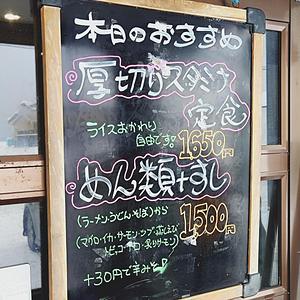 本日のおすすめ
厚切りスタミナ
定食
ライスおかわり
自由です。
1650円
めん類+すし
(ラーメン,うどん,そば)から
1500円
(マグロ・イカ・サーモン・ツブ・
トビッコ・
・炙りサーモン)
+30円で辛みそ